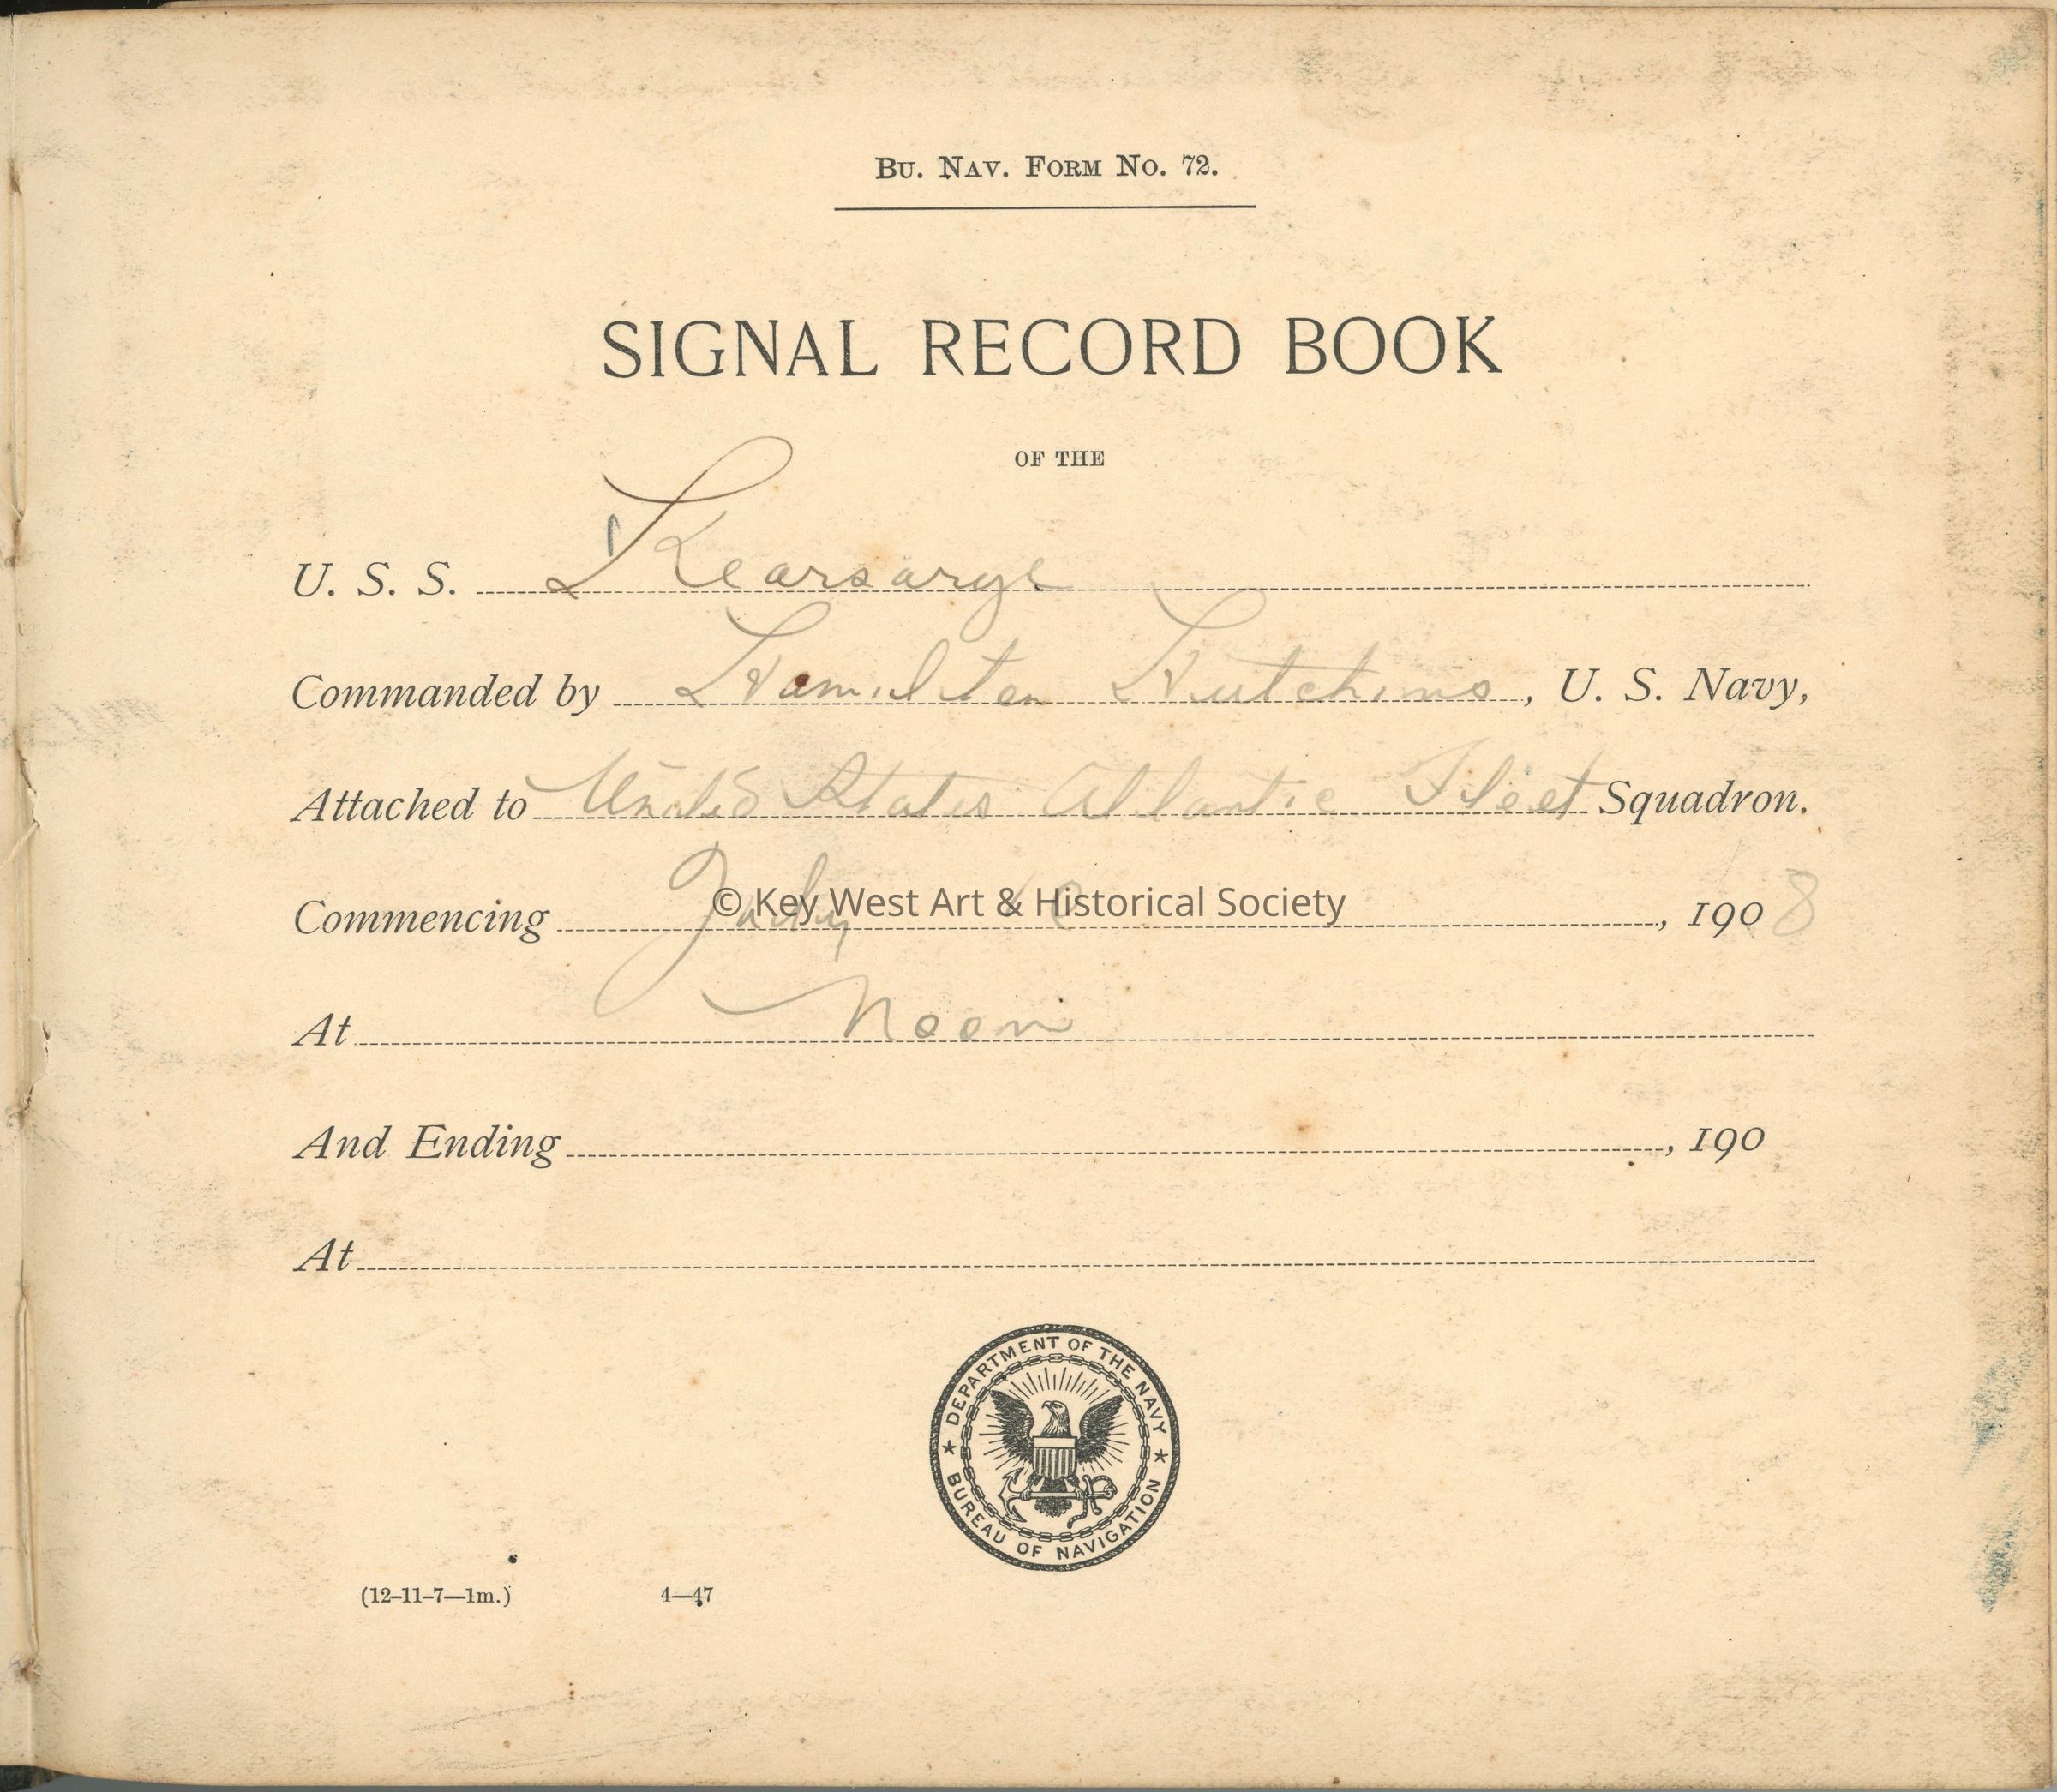 BU. NAV. FORM NO. 72.
SIGNAL RECORD BOOK
OF THE
U. S. S. Kearsarge
Commanded by Hamilton Hutchins, U. S. Navy,
Attached to United States Atlantic Fleet Squadron.
Commencing July , 1908
© Key West Art & Historical Society
At Noon
And Ending , 190
At
DEPARTMENT OF THE NAVY
BUREAU OF NAVIGATION
(12-11-7—1m.) 4—47